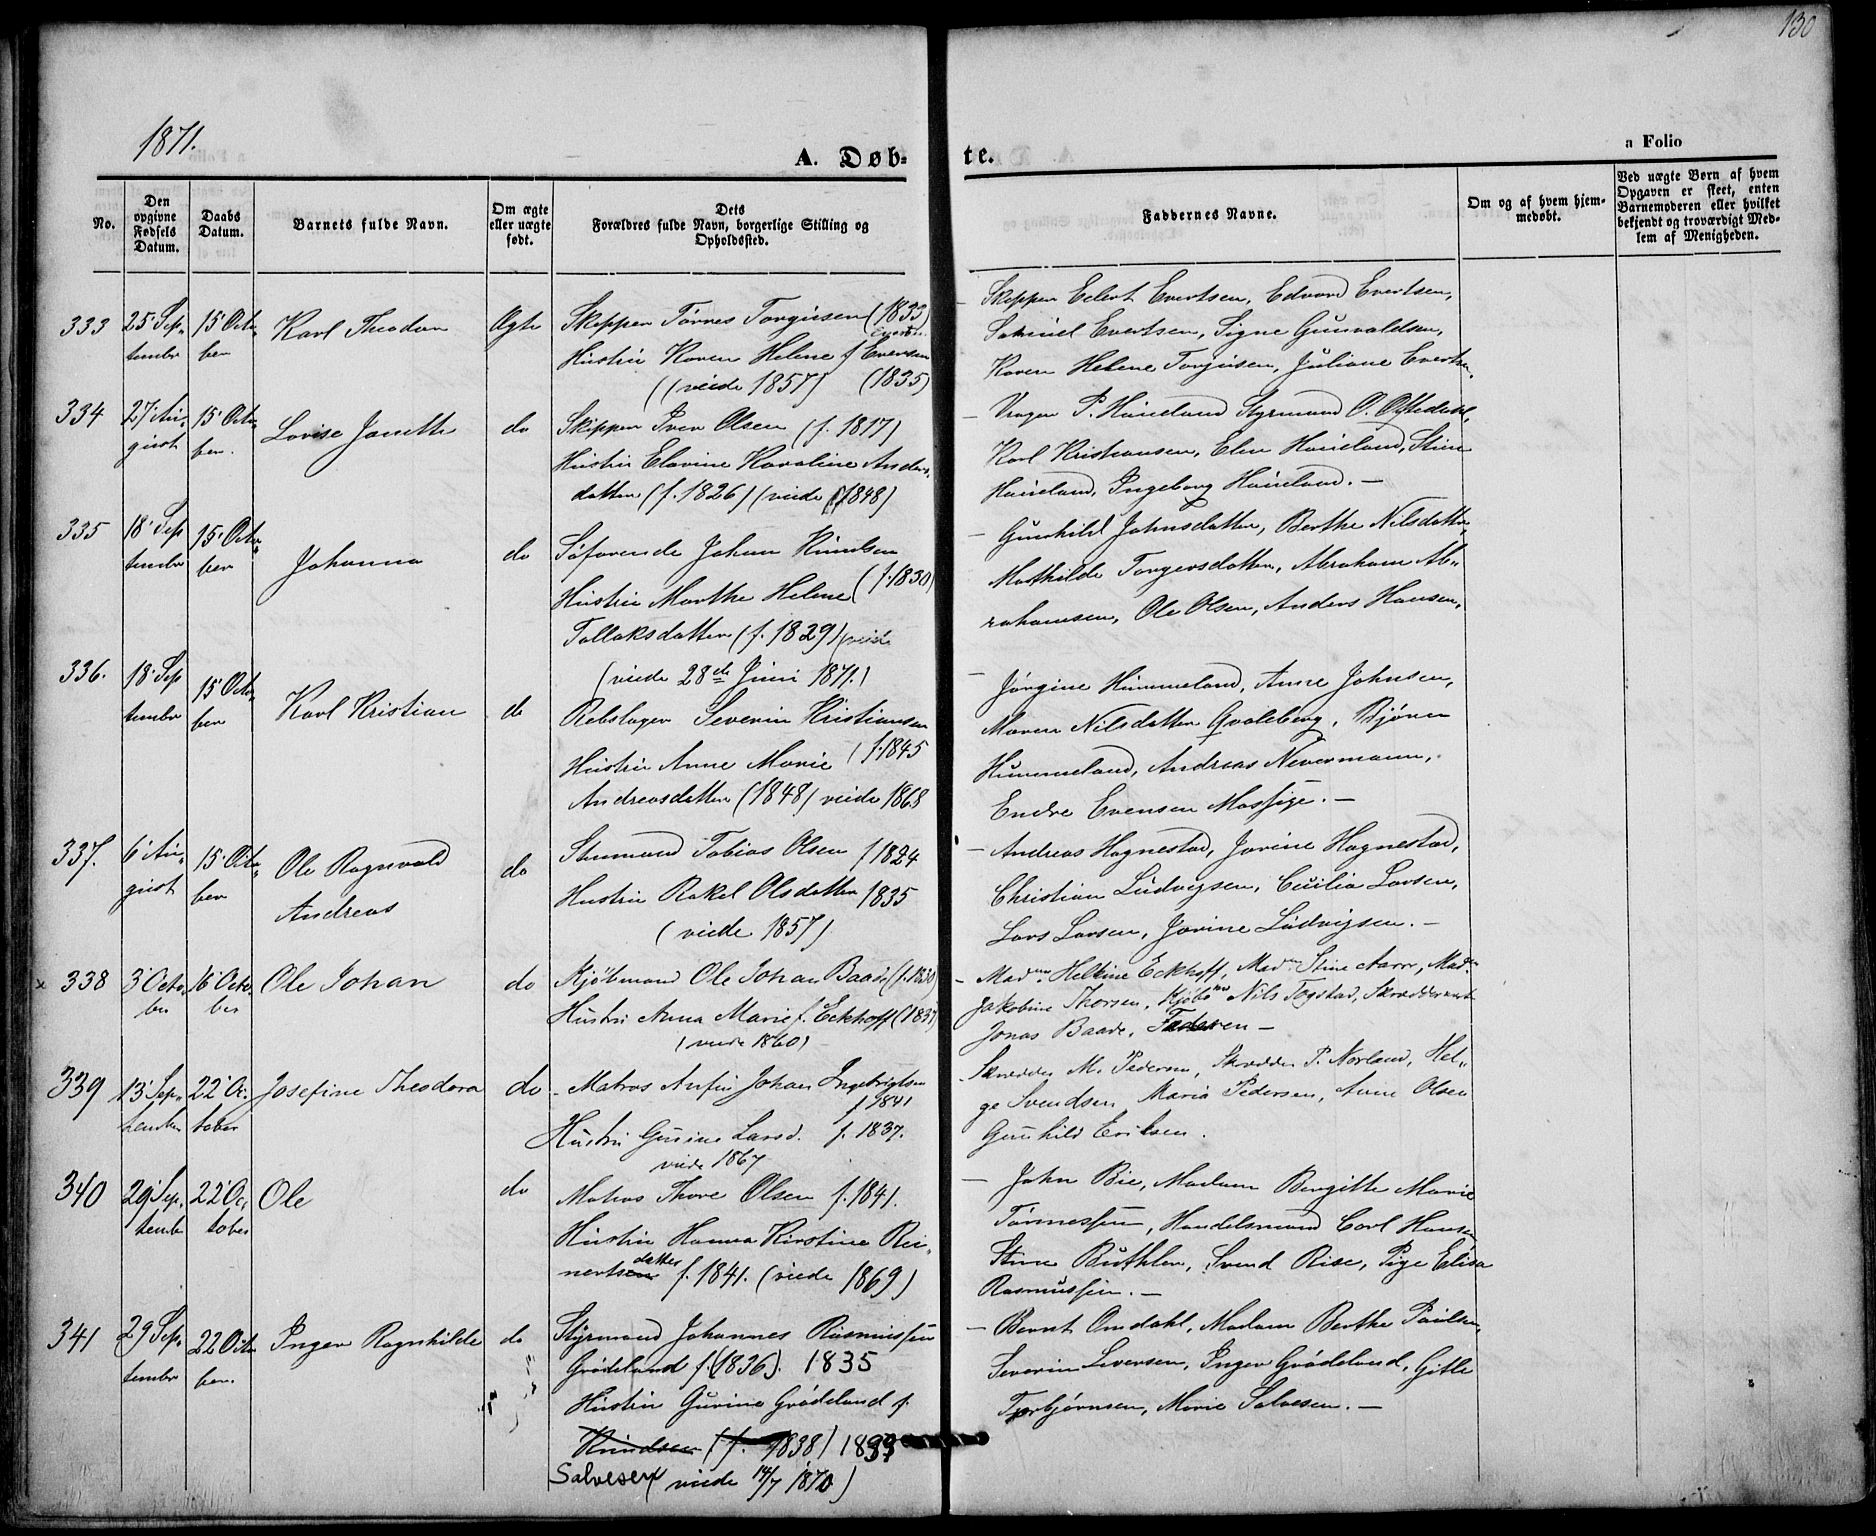 130
1871.
A. Døb-
te.
a Folio
No.
Den opgivne Fødsels Datum.
Daabs Datum.
Barnets fulde Navn.
Om ægte eller uægte født.
Dets Forældres fulde Navn, borgerlige Stilling og Opholdssted.
Faddernes Navne.
Om og af hvem hjemmedøbt.
Ved uægte Børn af hvem Opgaven er skeet, enten Barnemoderen eller hvilket bekjendt og troværdigt Medlem af Menigheden.
333 25 Sep- 15 Octo-
tember ber
Karl Theodor
Ægte
Skipper Tørres Torgersen (1833)
Hustru Karen Helene f Eversen
(viede 1857) (1835)
Skipper Eilert Evertsen, Edvard Evertsen,
Samuel Evertsen, Signe Gunvaldsen,
Karen Helene Torjusen, Juliane Evertsen.
334 27 Au- 15 Octo-
gust ber.
Lovise Janette
do
Skipper Iver Olsen (f. 1817)
Hustru Elevine Karoline Anders-
datter (f. 1826) (viede 1848)
Vragen P. Haueland Styrmand O. Oftedahl,
Karl Kristiansen, Elen Haueland, Stine
Haueland, Ingeborg Haueland. —
335 18 Sep 15 Octo-
tember ber
Johanna
do
Søfarende Johan Knudsen
Hustru Marthe Helene (f. 1830)
Tollaksdatter (f. 1829) (viede
(viede 28de Juni 1871.)
Gunhild Johnsdatter, Berthe Nilsdatter,
Mathilde Torgersdatter, Abraham Ab-
rahamsen, Ole Olsen, Anders Hansen,
336. 18 Sep 15 Octo-
tember ber
Karl Kristian
do
Rebslager Severin Kristiansen
Hustru Anne Marie (f. 1845
Andreasdatter (1848) viede 1868
Jørgine Hummeland, Anne Johnsen,
Maren Nilsdatter Qvaleberg, Bjøren
Hummeland, Andreas Nevermann,
Endre Evensen Mossige. —
337. 6 Au- 15 Octo-
gust ber
Ole Ragnvald
Andreas
do
Stuemand Tobias Olsen f 1824
Hustru Rakel Olsdatter 1835
(viede 1857)
Andreas Hognestad, Jorine Hognestad,
Christian Ludvigsen, Cecilia Larsen,
Lars Larsen, Jorine Ludvigsen. —
x 338 3 Octo- 16 Octo-
ber ber
Ole Johan
do
Kjøbmand Ole Johan Baade (f. 1830)
Hustru Anna Marie f. Eckhoff (1837)
(viede 1860)
Madm. Helkine Eckhoff, Madm. Stine Aarre, Madm.
Jakobine Thorsen, Kjøbmd Nils Tegstad, Skrædderm
Jonas Baade, Faderen —
339 13 Sep- 22 Oc-
tember tober
Josefine Theodora
do
Matros Anfin Johan Ingebrigtsen
f 1841
Hustru Gurine Larsd. f. 1837.
viede 1867
Skrædder M. Pedersen, Skrædder P. Norland, Hel-
ge Svendsen, Maria Pedersen, Anne Olsen
Gunhild Eriksen.
340 29 Sep. 22 Oc-
tember tober
Ole
do
Matros Thore Olsen f. 1841.
Hustru Hanna Kirstine Rei-
datter
nertsen f. 1841. (viede 1869)
John Bie, Madam Bergitte Marie
Tørnessen, Handelsmand Carl Hansen
Stine Buthlen, Svend Rise, Pige Elisa
Rasmussen. —
341 29 Sep. 22 Octo
tember ber.
Inger Ragnhilde
do
Styrmand Johannes Rasmussen
Grødeland f. (1836). 1835
Hustru Gurine Grødeland f.
Knudsen (f. 1838) 1839
Salvesen viede 14/7 1870)
Bernt Omdahl, Madam Berthe Paulsen,
Severin Seversen, Inger Grødeland, Gitle
Torbjørnsen, Marie Salvesen. —